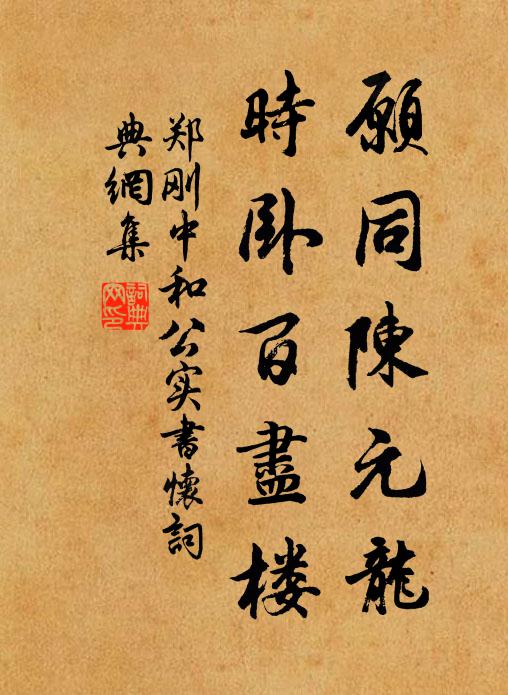 願同陳元龍
時卧百盡楼
郑刚中和公实書懷詞
典網集
詞典網印